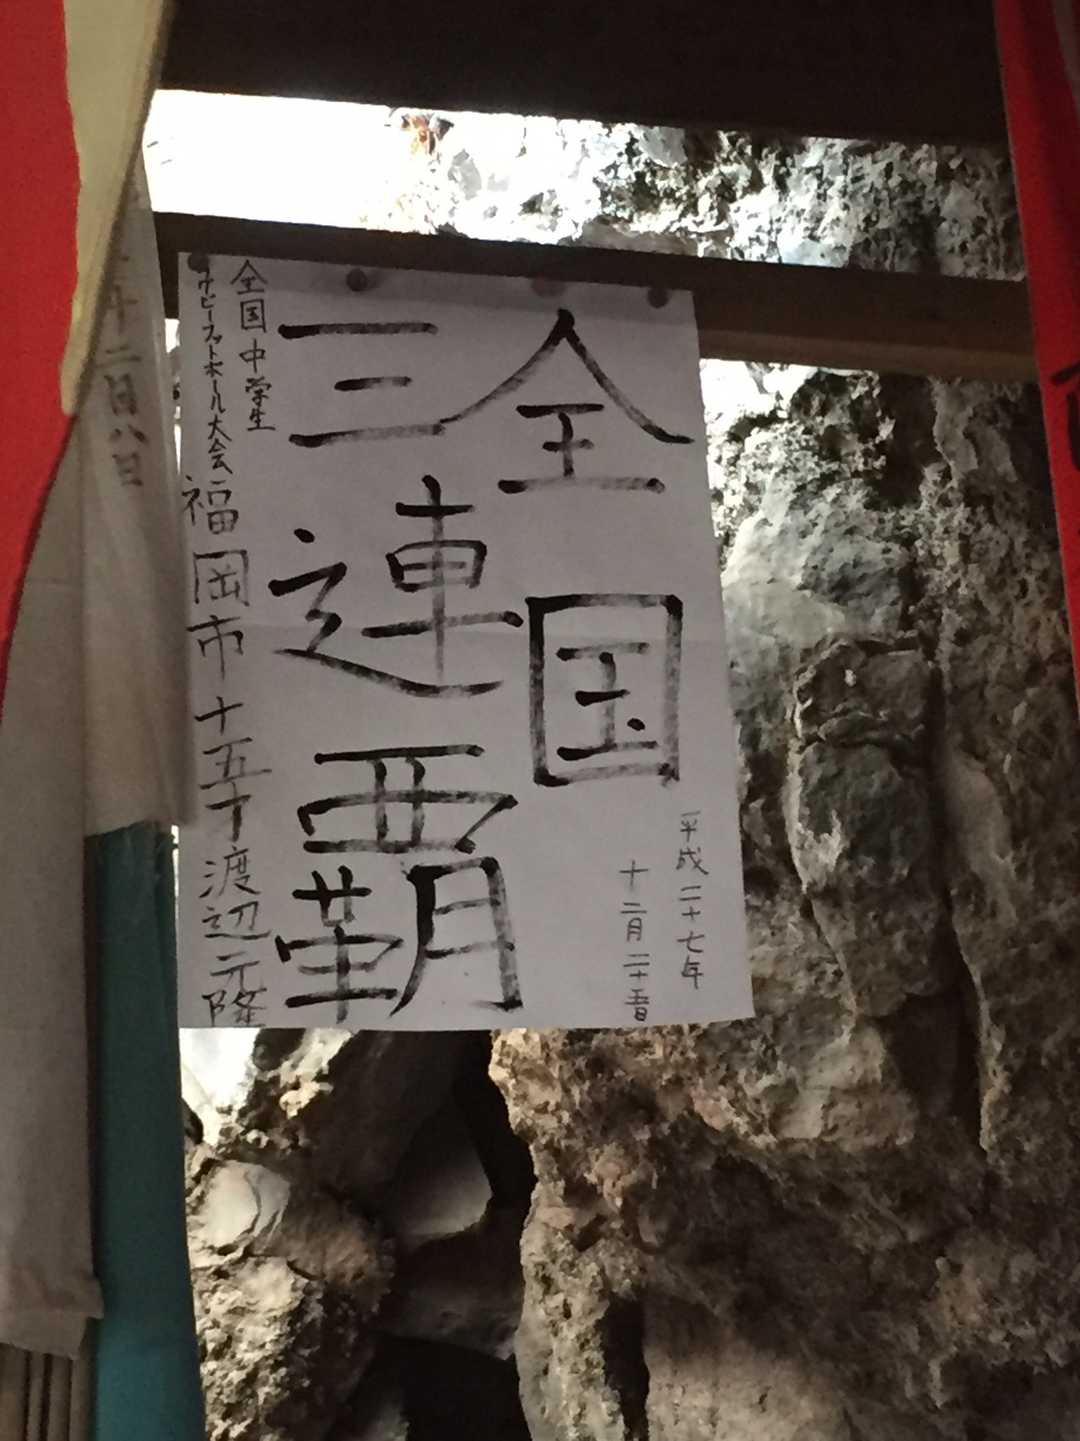 全国
三連覇
平成二十七年
十二月二十五日
全国中学生
ラグビーフットボール大会
福岡市十五才渡辺元隆
年二月八日